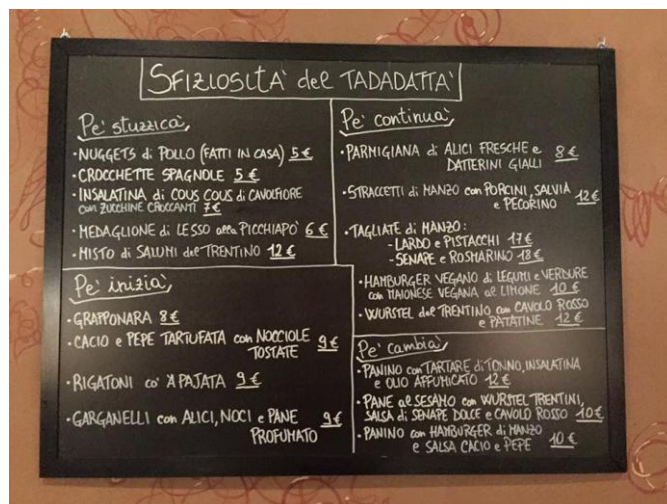 SFIZIOSITA' del TADADATTA'
Pe' stuzzicà
• NUGGETS di POLLO (FATTI IN CASA) 5€
• CROCCHETTE SPAGNOLE 5€
• INSALATINA di COUS COUS di CAVOLFIORE
con ZUCCHINE CROCCANTI 7€
• MEDAGLIONE di LESSO alla PICCHIAPÒ 6€
• MISTO di SALUMI del TRENTINO 12€
Pe' inizià
• GRAPPONARA 8€
• CACIO e PEPE TARTUFATA con NOCCIOLE
TOSTATE 9€
• RIGATONI co' A PAJATA 9€
• GARGANELLI con ALICI, NOCI e PANE
PROFUMATO 9€
Pe' continuà
• PARMIGIANA di ALICI FRESCHE e
DATTERINI GIALLI 8€
• STRACCETTI di MANZO con PORCINI, SALVIA
e PECORINO 12€
• TAGLIATE di MANZO:
- LARDO e PISTACCHI 17€
- SENAPE e ROSMARINO 18€
• HAMBURGER VEGANO di LEGUMI e VERDURE
con MAIONESE VEGANA al LIMONE 10€
• WURSTEL del TRENTINO con CAVOLO ROSSO
e PATATINE 12€
Pe' cambià
• PANINO con TARTARE di TONNO, INSALATINA
e OLIO AFFUMICATO 12€
• PANE al SESAMO con WURSTEL TRENTINI,
SALSA di SENAPE DOLCE e CAVOLO ROSSO 10€
• PANINO con HAMBURGER di MANZO
e SALSA CACIO e PEPE 10€